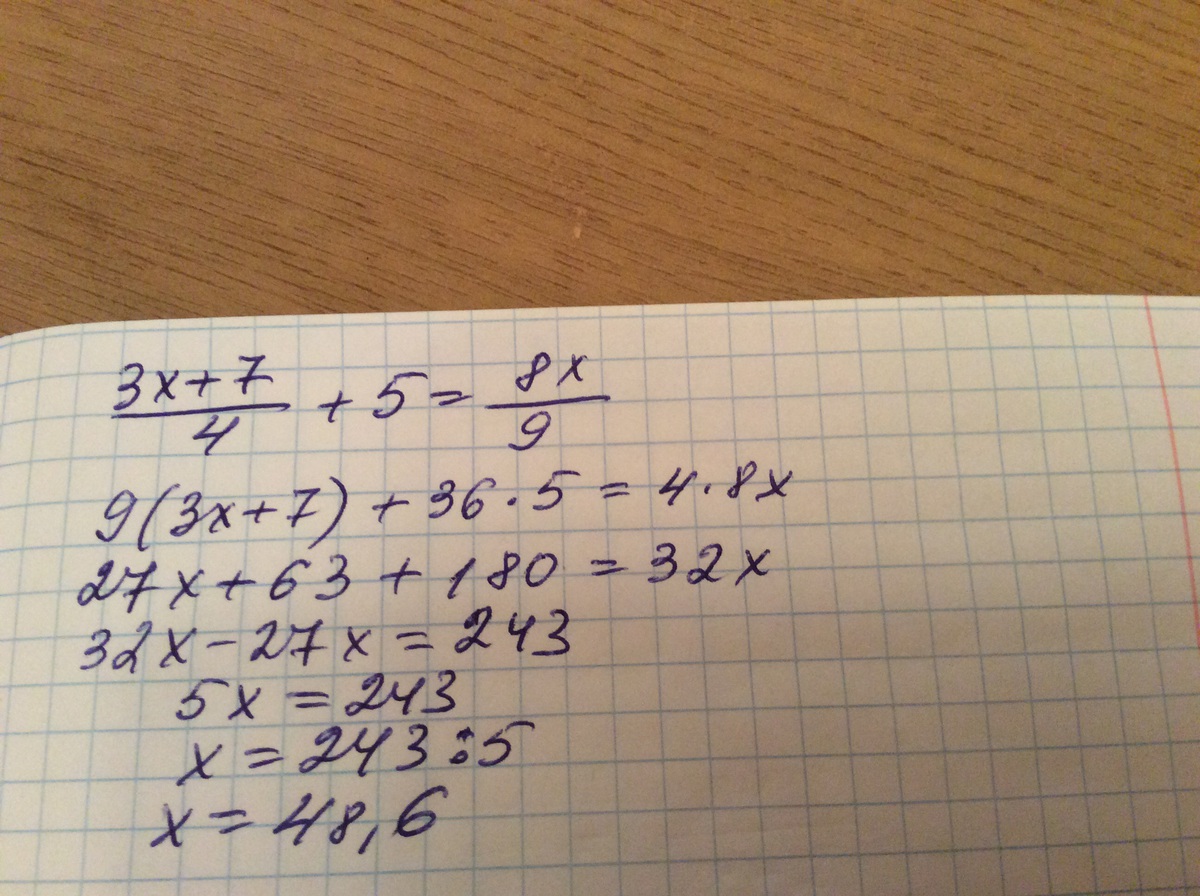 (3x+7)/4 + 5 = 8x/9
9(3x+7) + 36·5 = 4·8x
27x + 63 + 180 = 32x
32x - 27x = 243
5x = 243
x = 243:5
x = 48,6